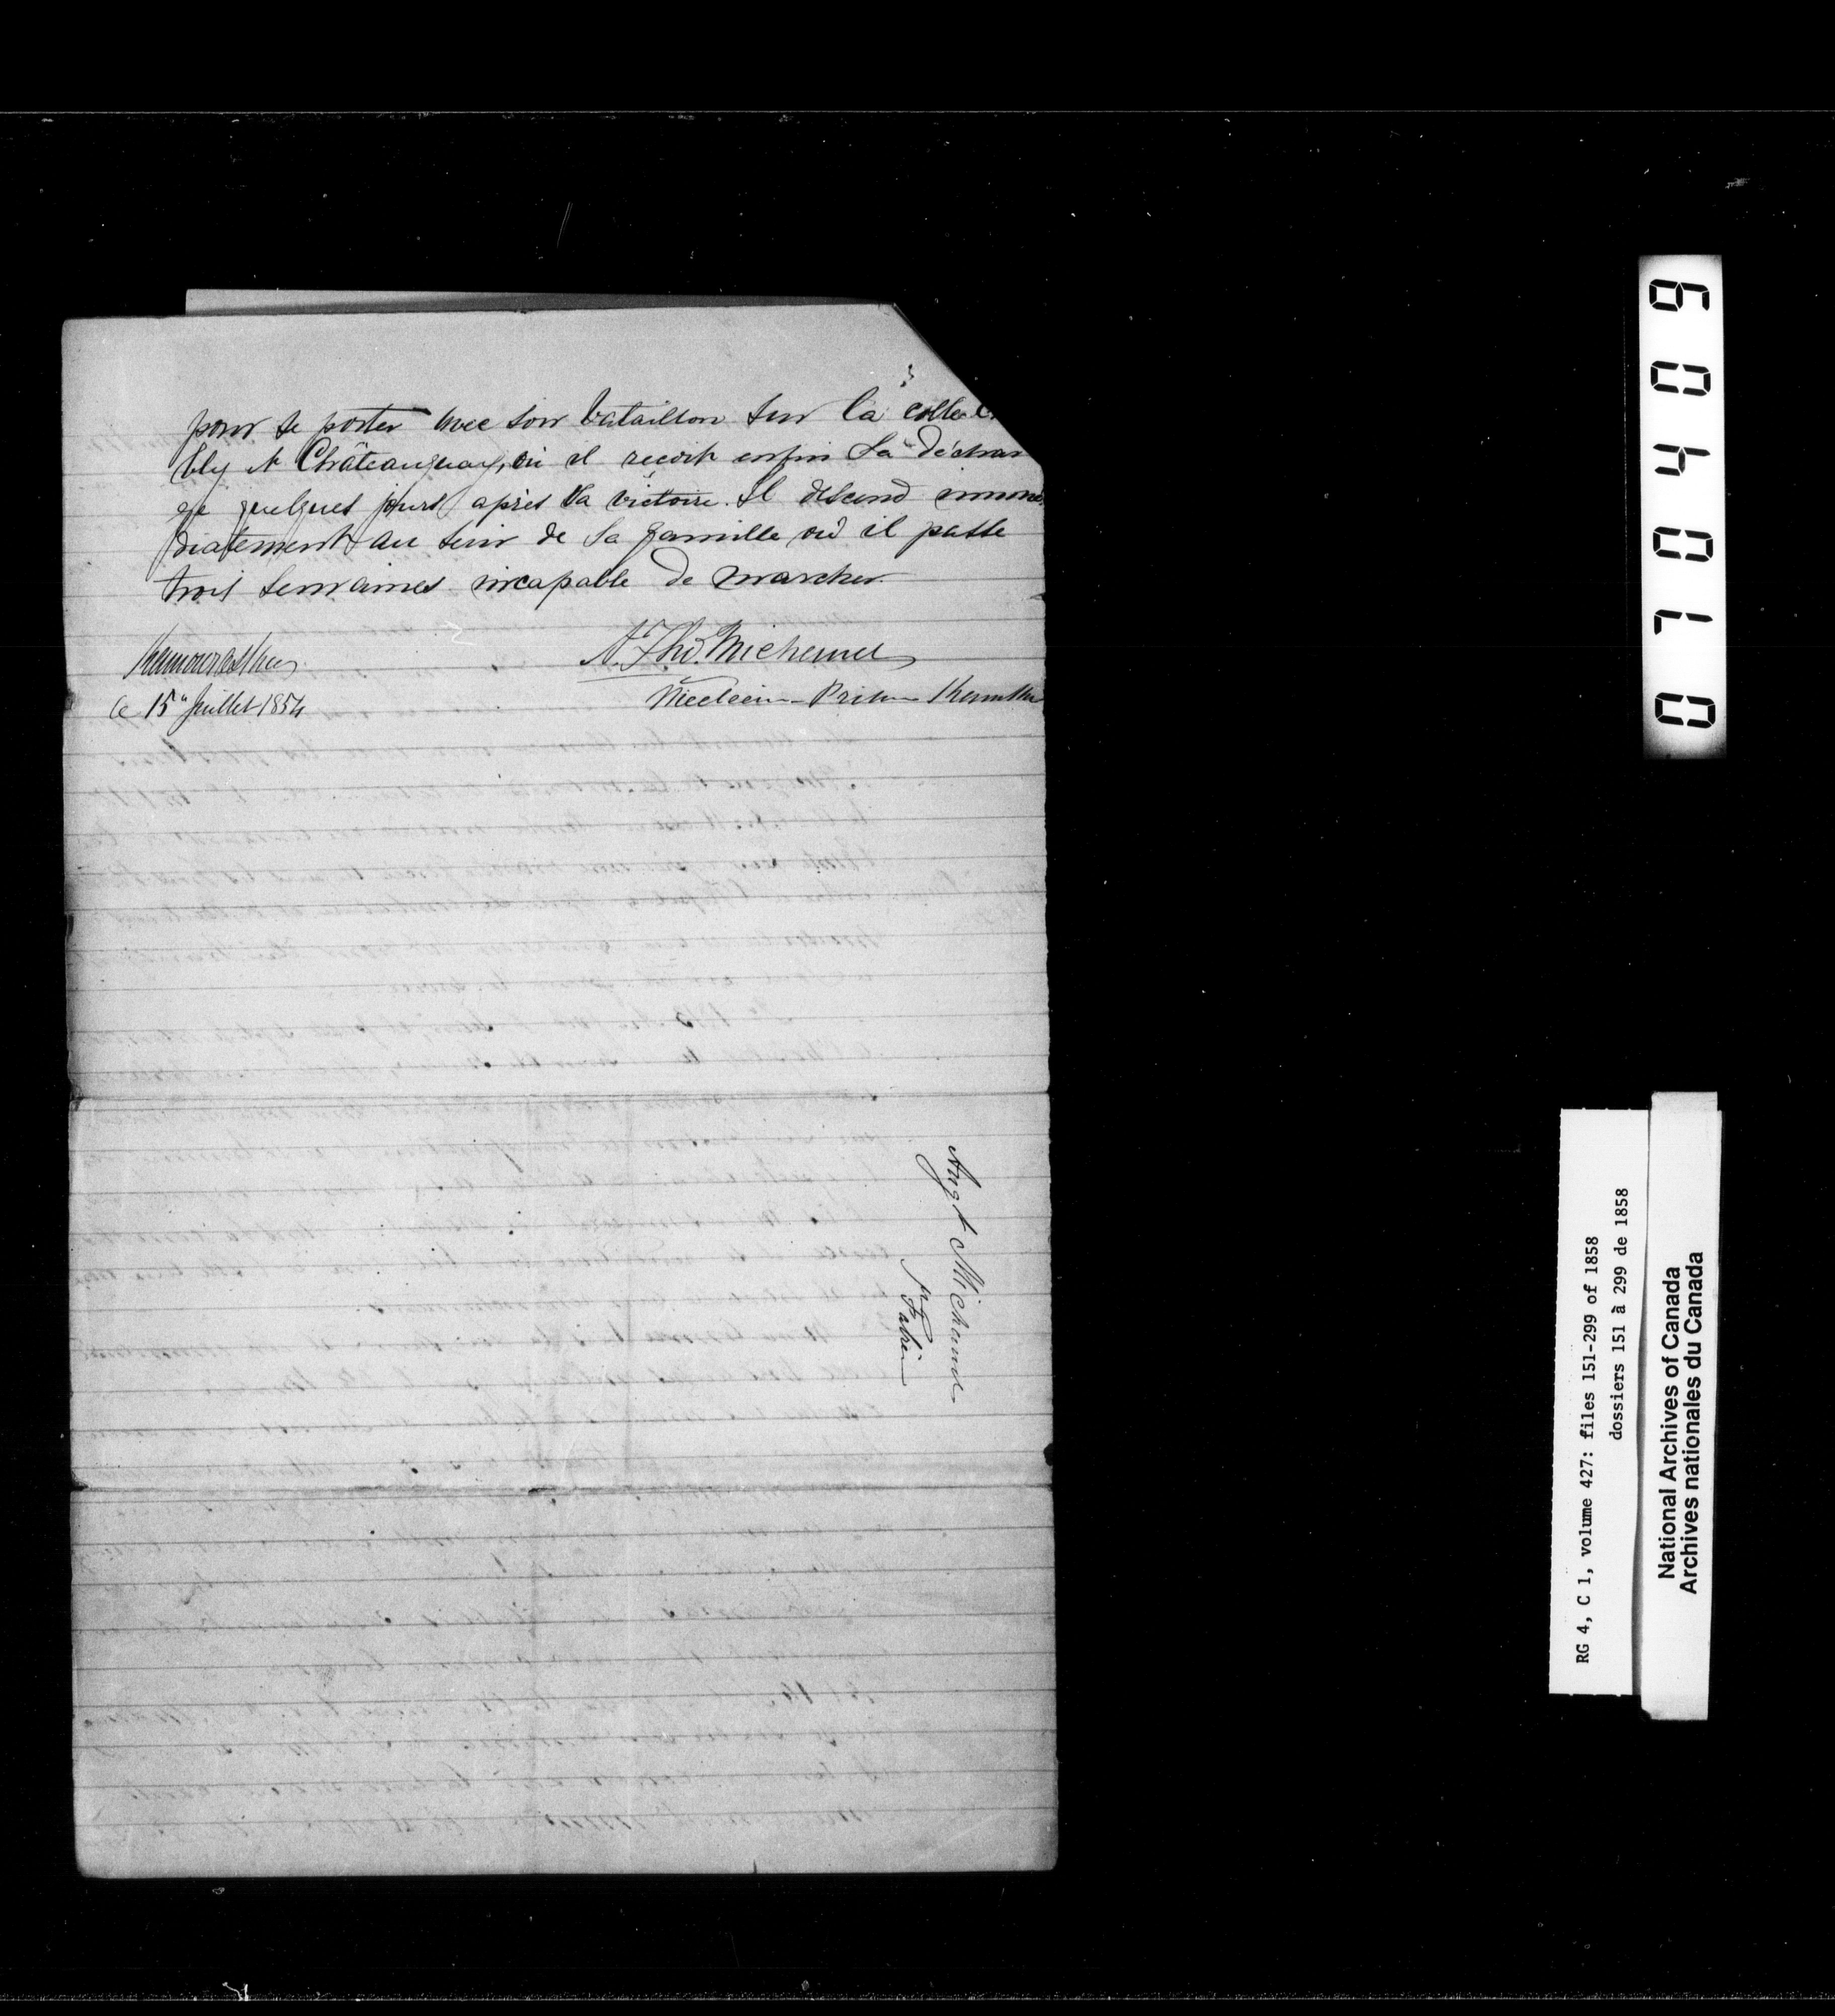 pour se porter avec son bataillon sur la
bly et Châteauguay, où il reçoit enfin sa déchar
ge quelques jours après la victoire. Il descend immé
diatement au sein de sa famille où il passe
trois semaines incapable de marcher.
Kamouraska
ce 15 Juillet 1854
A. Ths. Michaud
Médecin
Augt Michaud
St Fabien
RG 4, C 1, volume 427: files 151-299 of 1858
dossiers 151 à 299 de 1858
National Archives of Canada
Archives nationales du Canada
0 7 0 4 0 9